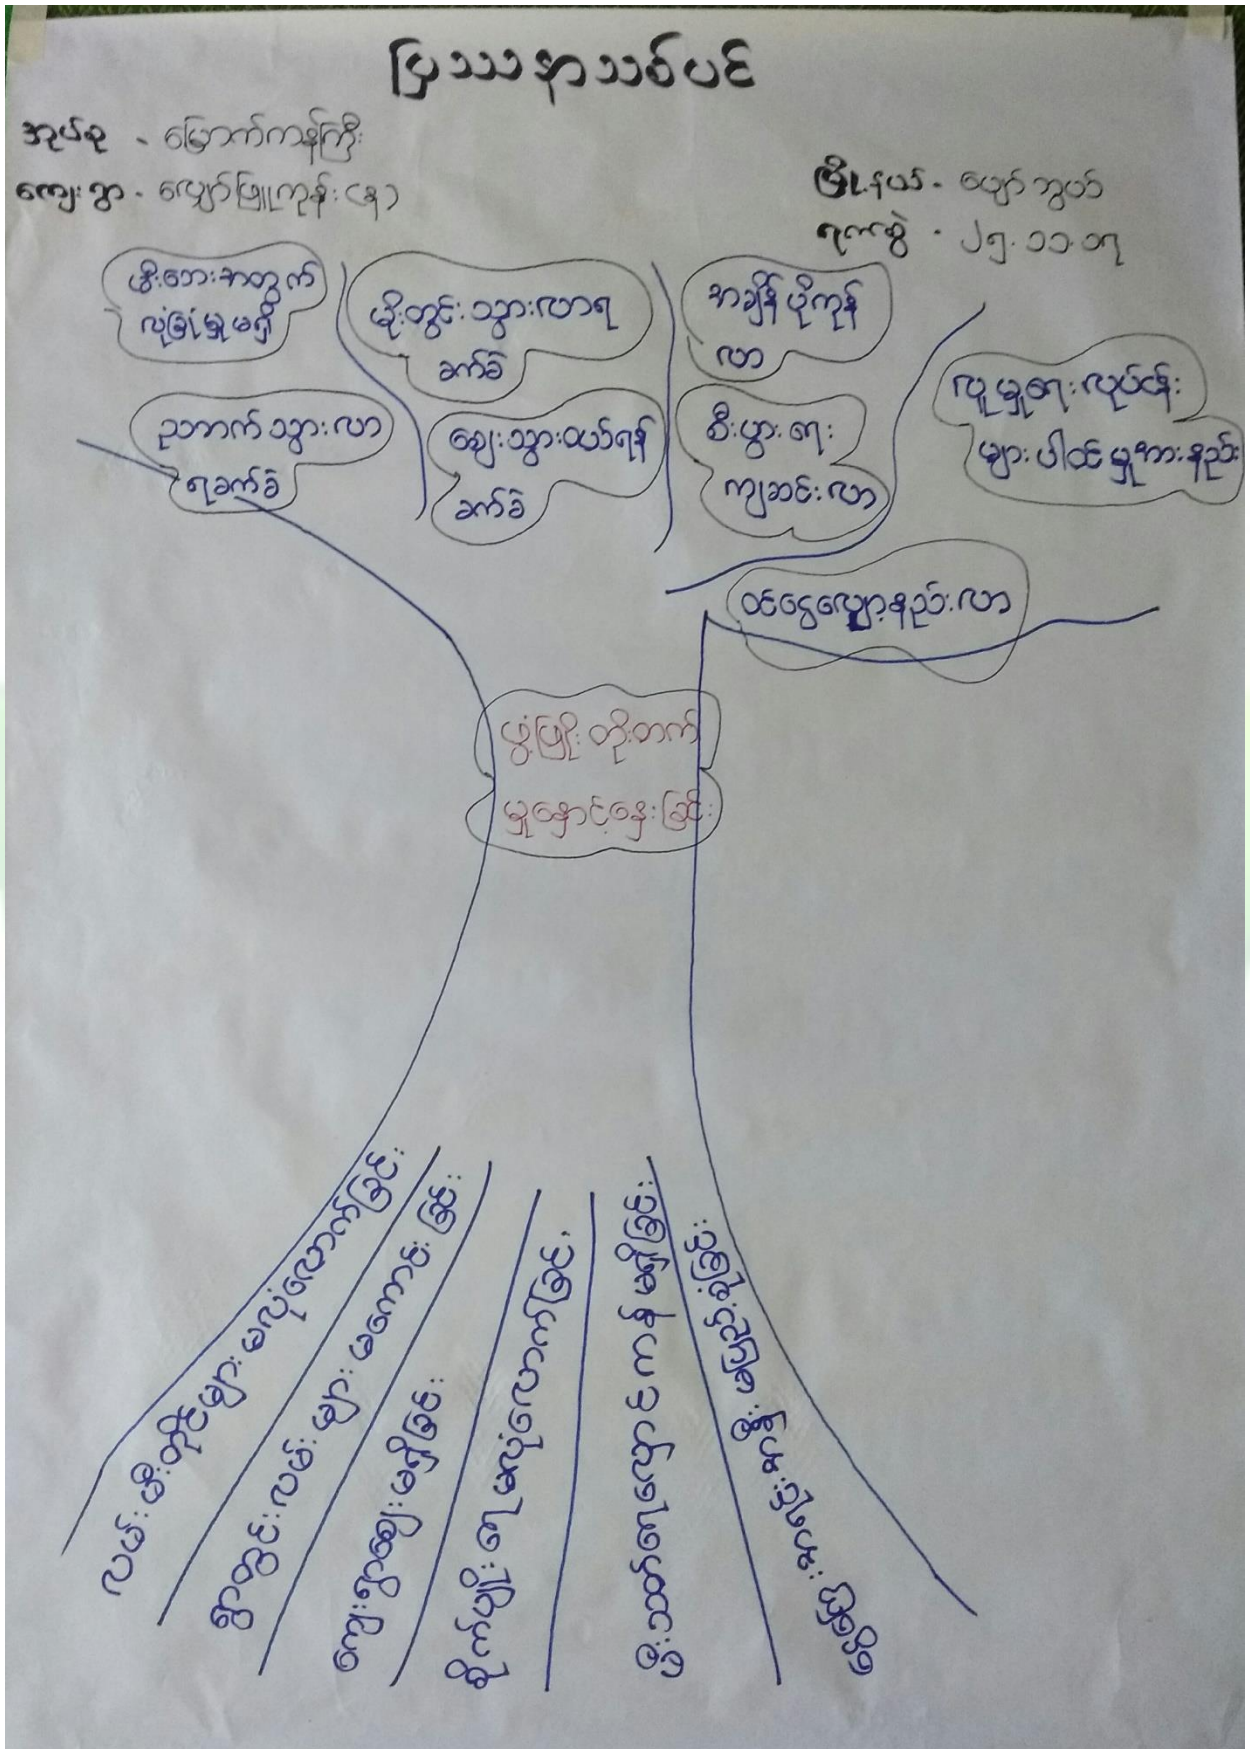 ပြဿနာသစ်ပင်
အုပ်စု - မြောက်ကန်ကြီး
ကျေးရွာ - လျှော်ဖြူကုန်း (န)
မြို့နယ် - ပျော်ဘွယ်
ရက်စွဲ - ၂၅.၁၁.၁၇
မီးဘေးအတွက်
လုံခြုံမှုမရှိ
မိုးတွင်းသွားလာရ
ခက်ခဲ
အချိန်ပိုကုန်
လာ
လူမှုရေးလုပ်ငန်း
များပါဝင်မှုအားနည်း
ညဘက်သွားလာ
ရခက်ခဲ
ဈေးသွားဝယ်ရန်
ခက်ခဲ
စီးပွားရေး
ကျဆင်းလာ
ဝင်ငွေလျော့နည်းလာ
ဖွံ့ဖြိုးတိုးတက်
မှုနှောင့်နှေးခြင်း
လမ်းမီးတိုင်များမလုံလောက်ခြင်း
ရွာတွင်းလမ်းများမကောင်းခြင်း
ကျေးရွာဈေးမရှိခြင်း
စိုက်ပျိုးရေမလုံလောက်ခြင်း
မီးသတ်ရေလှောင်ကန်မရှိခြင်း